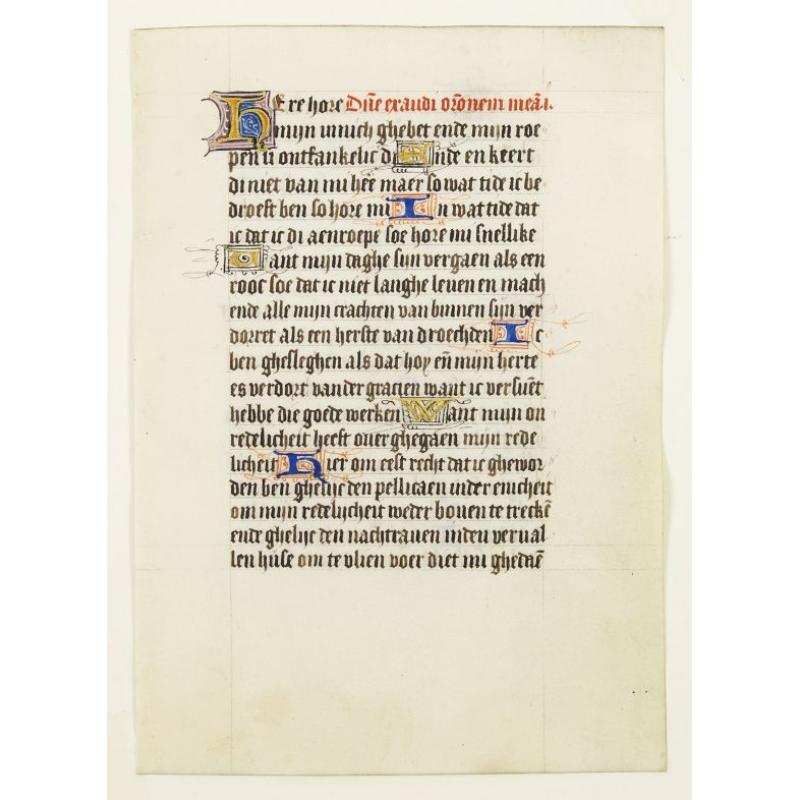 Here hore Dn̄e exaudi orōnem meā. i.
mijn innich ghebet ende mijn roe
pen si ontfankelic di Ende en keert
di niet van mi hēe maer so wat tide ic be
droeft ben so hore mi In wat tide dat
ic dat ic di aenroepe soe hore mi snellike
Want mijn daghe sijn vergaen als een
rooc soe dat ic niet langhe leuen en mach
ende alle mijn crachten van binnen sijn ver
dorret als een herste van droecheden Ic
ben ghesleghen als dat hoy en̄ mijn herte
es verdort vander gracien want ic versūet
hebbe die goede werken Want mijn on
redelicheit heeft ouer ghegaen mijn rede
licheit Hier om eest recht dat ic ghewor
den ben ghelijc den pellicaen inder enicheit
om mijn redelijcheit weder bouen te treckē
ende ghelijc den nachtrauen inden verual
len huse om te vlien voer diet mi ghedaē